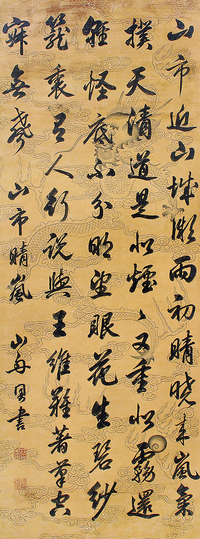 山市近山城漸雨初晴曉來嵐氣
撲天清道是似煙〻又重似霧還
輕怪底不分明望眼花生碧紗
籠裏有人行說與王維難著筆空
寂無聲 山市晴嵐 山舟同書